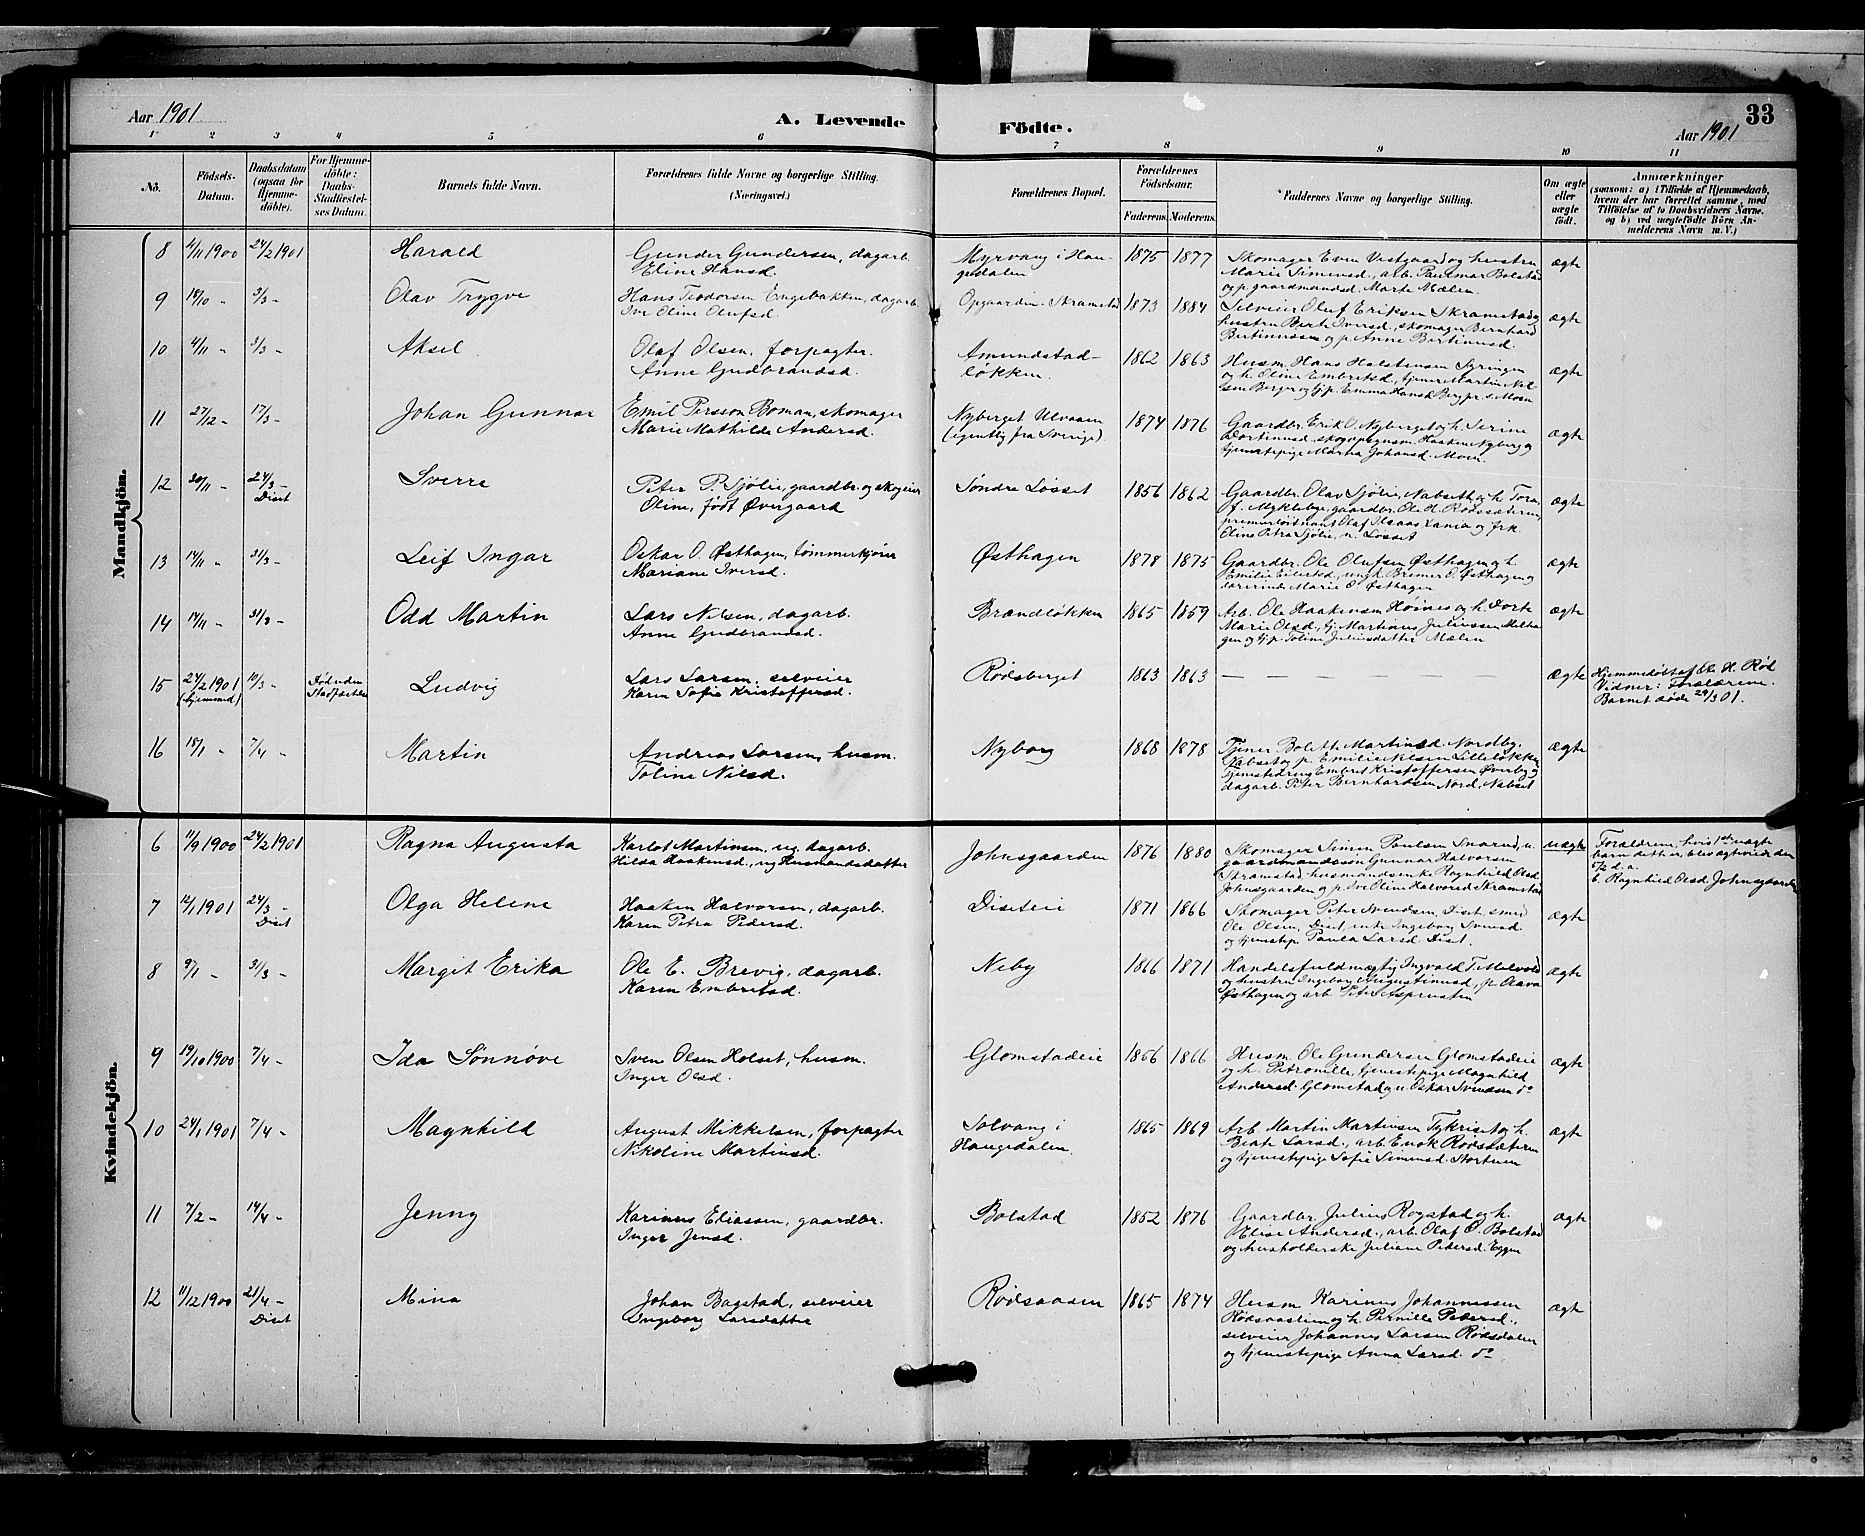 Aar 1901
A. Levende Födte.
33
Aar 1901
1 2 3 4 5 6 7 8 9 10 11
No.
Födsels-Datum.
Daabsdatum (ogsaa for Hjemme-döbte).
For Hjemme-döbte: Daabs-Stadfæstel-ses Datum.
Barnets fulde Navn.
Forældrenes fulde Navne og borgerlige Stilling. (Næringsvei.)
Forældrenes Bopæl.
Forældrenes Födselsaar.
Faderens. Moderens.
Faddernes Navne og borgerlige Stilling.
Om ægte eller uægte födt.
Anmærkninger
(saasom: a) i Tilfælde af Hjemmedaab, hvem der har forrettet samme, med Tilföielse af to Daabsvidners Navne, og b) ved uægtefödte Börn An-melderens Navn m. V.)
Mandkjön.
8 4/11 1900 24/2 1901 Harald
Gunder Gundersen, dagarb.
Eline Hansd.
Myrvang i Hau-
gedalen
1875 1877
Skomager Even Vestgaard og hustru
Marie Simensd., arb. Paulmar Bolstad
og p. gaardmandsd. Marte Mælen.
ægte
9 18/10 - 3/3 - Olav Trygve
Hans Teodorsen Engebakken, dagarb.
Ive Oline Olufsd.
Opgaarden. Skramstad
1873 1884
Selveier Oluf Eriksen Skramstad og
hustru Berte Iversd., skomager Bernhard
Bertinussen og p. Anne Bertinusd.
ægte
10 4/11 - 3/3 - Aksel.
Olaf Olsen, forpagter.
Anne Gudbrandsd.
Amundstad-
løkken.
1862 1863
Husm. Hans Halstensen Syringen
og h. Oline Embretsd., tjener Martin Nil-
sen Berger og tj.p. Emma Hansd. Berg pr. s. Moen
ægte
11 27/12 - 17/3 - Johan Gunnar
Emil Persson Boman, skomager
Marie Mathilde Andersd.
Nyberget Ulvaaen
(egentlig fra Sverige).
1874 1876
Gaardbr. Erik O. Nyberget og h. Serine
Haaken Nyberg og
tjenestepige Marna Johansd. Moen.
ægte
12 30/11 - 24/3 - Diset Sverre
Peter P. Sjølie, gaardbr. og skogeier
Oline, født Øvergaard
Søndre Løsset
1856 1862
Gaardbr. Olav Sjølie, Nabset og h. Tora
f. Myklebye, gaardbr. Ole H. Rødsæteren,
premierløitnant Olaf Zania og frk.
Oline Petra Sjølie, n. Løsset
ægte
13 14/11 - 31/3 - Leif Ingar
Oskar O. Østhagen, tømmerkjører
Mariane Iversd.
Østhagen
1878 1875
Gaardbr. Ole Olufsen Østhagen og h.
Emilie Eilertsd., ungk. Bremer O. Østhagen og
lærerinde Marie O. Østhagen
ægte
14 14/11 - 31/3 - Odd Martin
Lars Nilsen, dagarb.
Anne Gudbrandsd.
Brandløkken
1865 1859
Arb. Ole Haakensen Høines og h. Dorte
Marie Olsd., tj. Martinus Juliussen Melha-
gen og tj.p. Toline Juliusdatter Mælen
ægte
15 24/2 1901 (hjemmed) 10/3 - Død uden Stadfæstelse Ludvig
Lars Larsen, selveier
Karen Sofie Kristoffersd.
Rødsberget
1863 1863
— — — — — —
ægte
Hjemmedøbt af Ole H. Rød
Vidner: Forældrene.
Barnet døde 29/3 01.
16 18/1 - 7/4 - Martin
Andreas Larsen, husm.
Toline Nilsd.
Nyborg
1868 1878
Tjener Bolett Martinsd. Nordby,
Nabset og p. Emilie Nilsen Lilleløkken,
tjenestedreng Embret Kristoffersen Øverby og
dagarb. Peter Bernhardsen Nord. Nabset
ægte
Kvindekjön.
6 11/9 1900 24/2 1901 Ragna Augusta
Karlot Martinsen, ug. dagarb.
Hilda Haakensd., ug. Husmandsdatter
Johnsgaarden
1876 1880
Skomager Simen Paulsen Snarud, u.
gaardmandssøn Gunnar Halvorsen
Skramstad, husmandsenke Ragnhild Olsd.
Johnsgaarden og p. Ive Oline Halvorsd. Skramstad
uægte
Forældrene, hvis 1ste uægte
barn dette er, blev ægteviede den
5/2 d.a.
b. Ragnhild Olsd. Johnsgaarden
7 12/1 1901 24/3 - Diset Olga Helene
Haaken Halvorsen, dagarb.
Karen Petra Pedersd.
Diseteie
1871 1866
Skomager Peter Svendsen, Diset, smed
Ole Olsen, Diset, enke Ingeborg Svensd.
og tjenestep. Paula Larsd. Diset.
ægte
8 9/1 - 31/3 - Margit Erika
Ole E. Brevig, dagarb.
Karen Embretsd.
Neby
1866 1871
Handelsfuldmægtig Ingvald T. Melvold
og hustru Ingeborg Augustinusd., p. Olava
Østhagen og arb. Peter S. Asprusten
ægte
9 19/10 1900 7/4 - Ida Sønnøve
Sven Olsen Holset, husm.
Inger Olsd.
Glomstadeie
1856 1866
Husm. Ole Gundersen Glomstadeie
og h. Petronille, tjenestepige Magnhild
Andersd. Glomstad og u. Oskar Svendsen do
ægte
10 24/1 1901 7/4 - Magnhild
August Mikkelsen, forpagter
Nikoline Martinsd.
Solvang i
Haugedalen.
1865 1869
Arb. Martin Martinsen Tykrist og h.
Beate Larsd., arb. Enok Rødsæteren
og tjenestepige Sofie Simensd. Stortuen
ægte
11 7/2 - 14/4 - Jenny
Karinus Eliassen, gaardbr.
Inger Jensd.
Bolstad
1852 1876
Gaardbr. Julius Rogstad og h.
Elise Andersd., arb. Olaf O. Bolstad
og husholderske Juliane Pedersd. Eggen
ægte
12 11/12 1900 21/4 - Diset Mina
Johan Bagstad, selveier
Ingeborg Larsdatter
Rødsaasen
1865 1874
Husm. Karinus Johannessen
Rødsaaslien og h. Pernille Pedersd.,
selveier Johannes Larsen Rødsdalen
og tjenestepige Anna Larsd. do
ægte